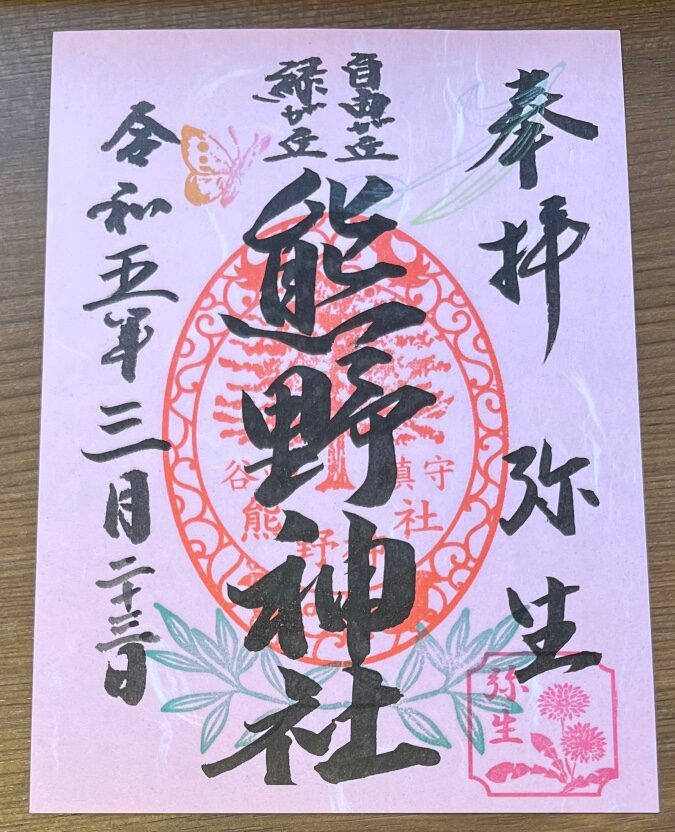 奉拝 弥生
自由が丘
緑が丘
熊野神社
令和五年三月二十三日
谷
鎮守
熊野神社
弥生